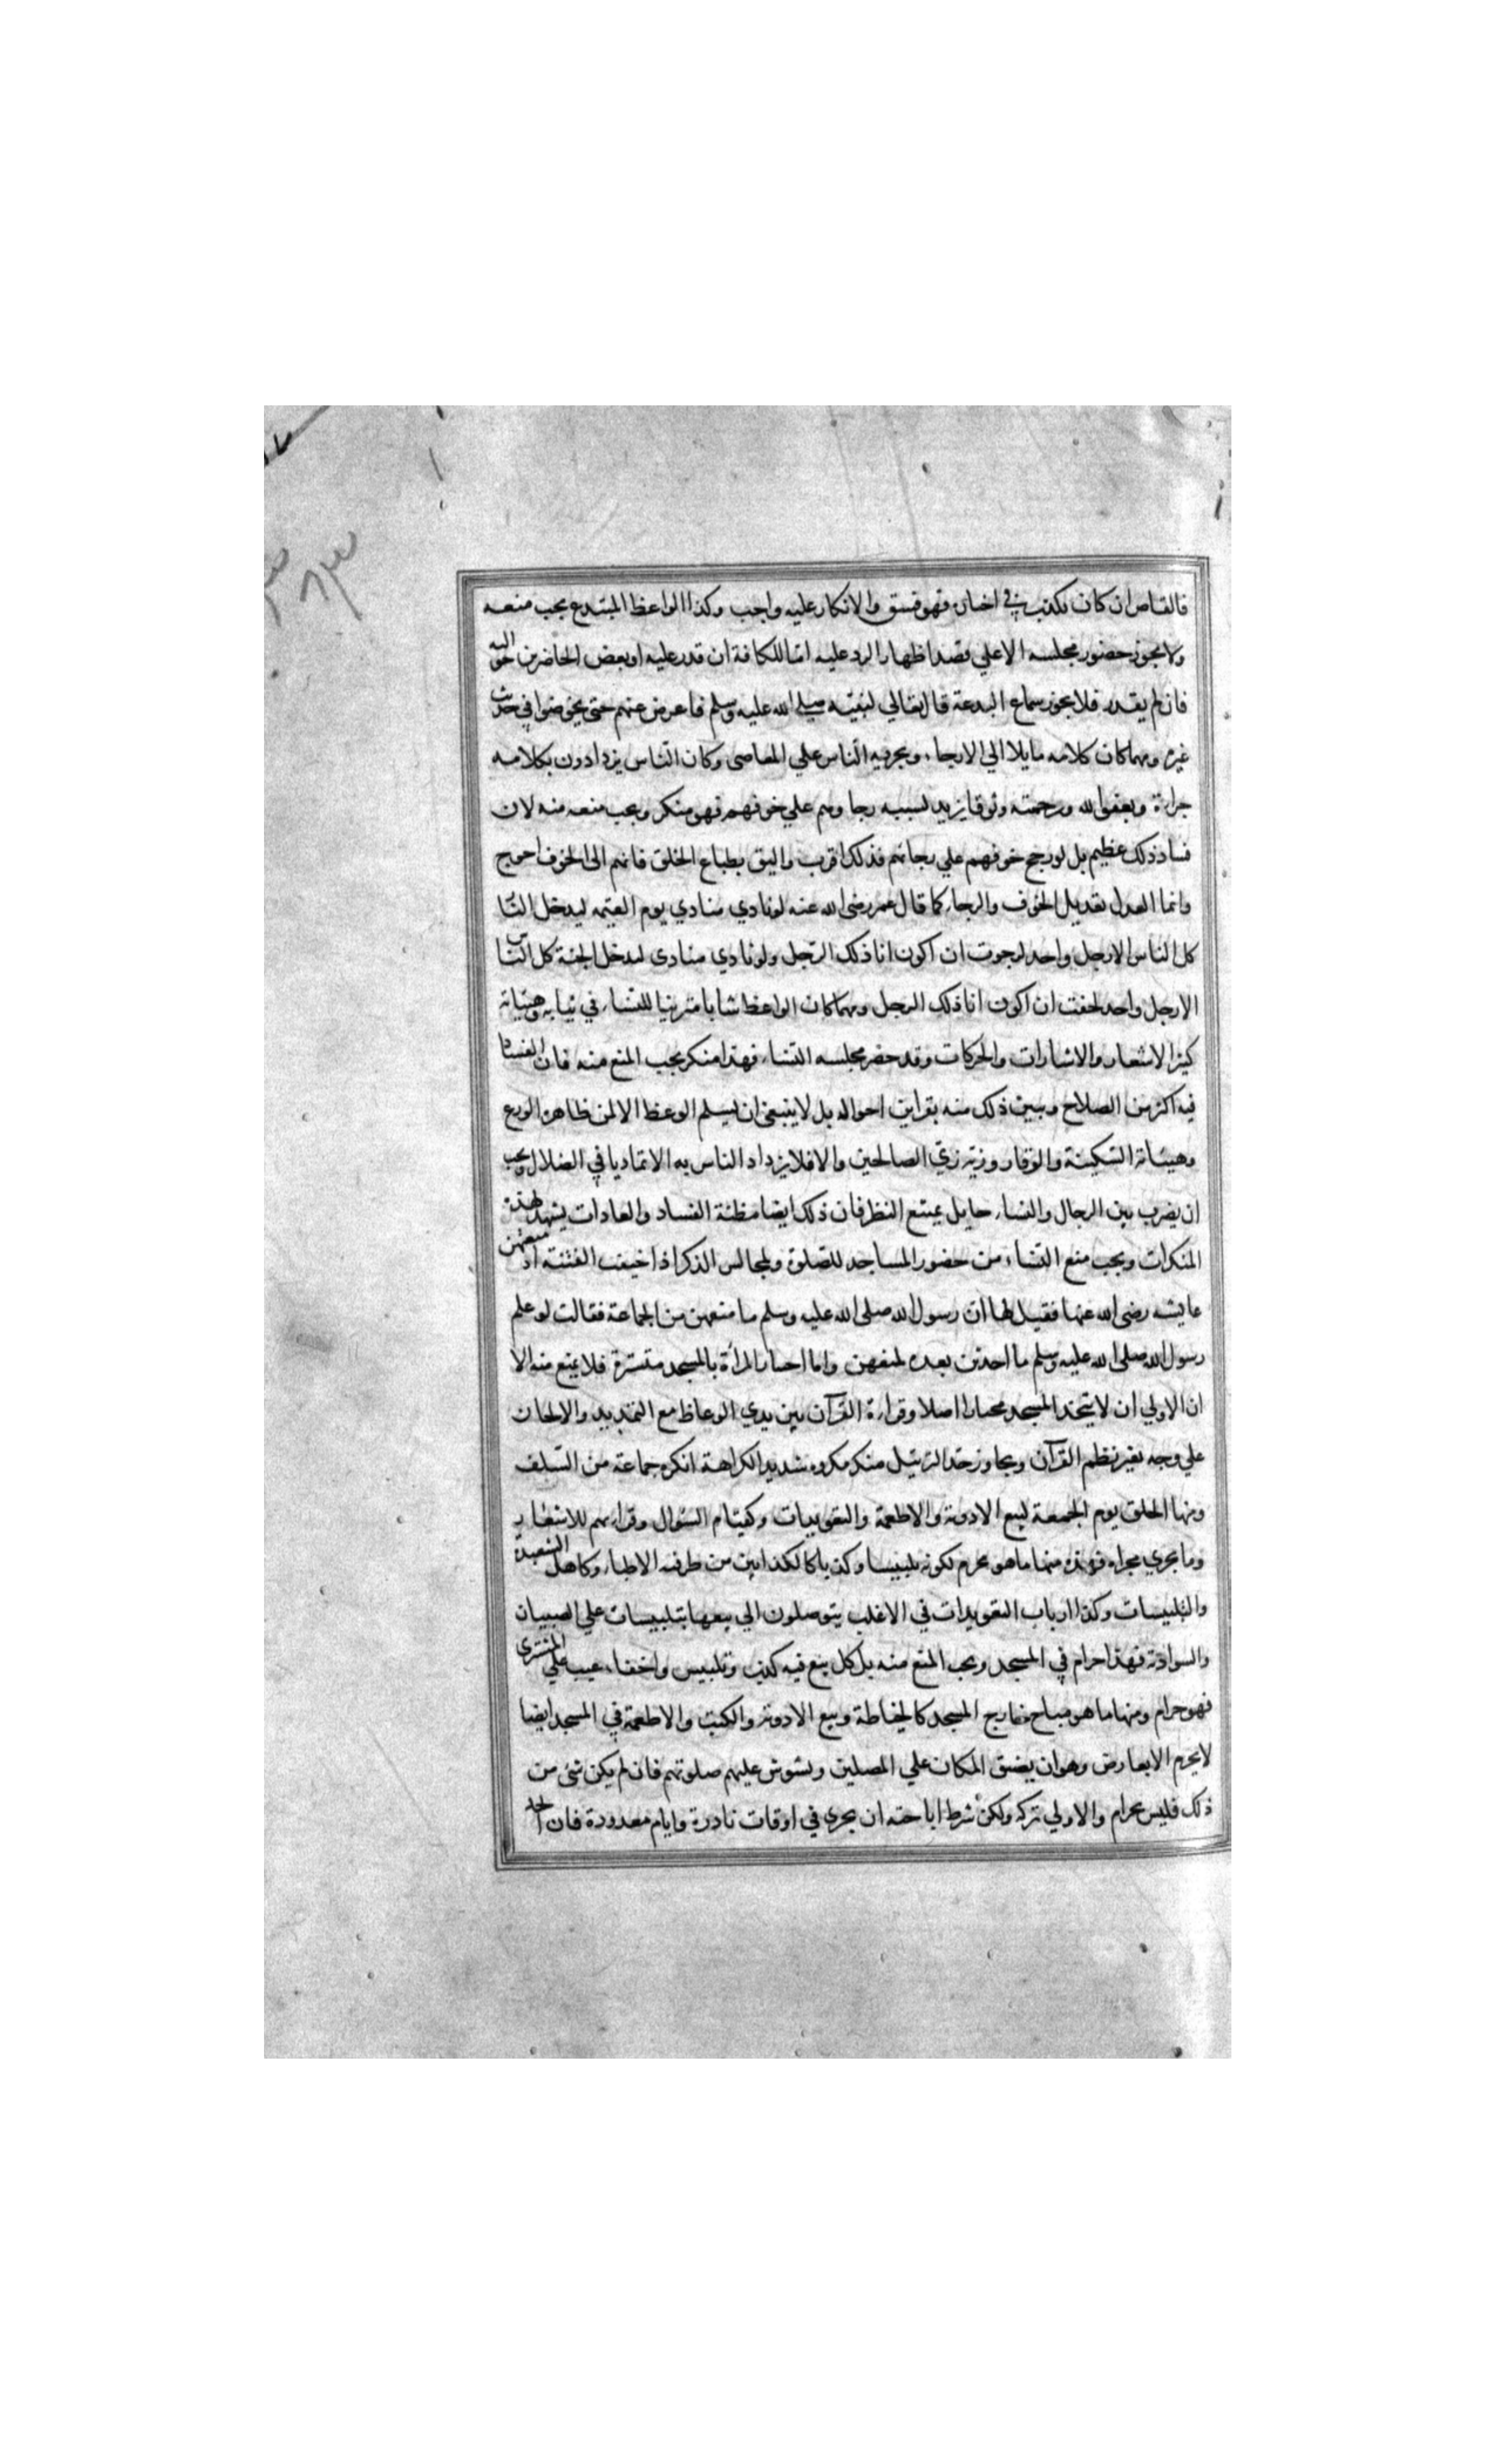 فالقاص ان كان يكذب في اخباره فهو فسق والانكار عليه واجب وكذا الواعظ المبتدع يجب منعه
ولا يجوز حضور مجلسه الا علي قصد اظهار الرد عليه اما للكافة ان قدر عليه او بعض الحاضرين حواليه
فان لم يقدر فلا يجوز سماع البدعة قال تعالي لنبيه صلي الله عليه وسلم فاعرض عنهم حتي يخوضوا في حديث
غيره ومهما كان كلامه مايلا الي الارجاء وتجرية الناس علي المعاصي وكان الناس يزدادون بكلامه
جراءة وبعفو الله ورحمته وثوقا يزيد بسببه رجاوهم علي خوفهم فهو منكر ويجب منعه منه لان
فساد ذلك عظيم بل لو رجح خوفهم علي رجائهم فذلك اقرب واليق بطباع الخلق فانهم الي الخوف احوج
وانما العدل تعديل الخوف والرجاء كما قال عمر رضي الله عنه لو نادي منادي يوم القيمة ليدخل النار
كل الناس الا رجل واحد لرجوت ان اكون انا ذلك الرجل ولو نادي منادي ليدخل الجنة كل الناس
الا رجل واحد لخفت ان اكون انا ذلك الرجل ومهما كان الواعظ شابا متزينا للنساء في ثيابه وهيئاته
كثير الاشعار والاشارات والحركات وقد حضر مجلسه النساء فهذا منكر يجب المنع منه فان الفساد
فيه اكثر من الصلاح ويبين ذلك منه بقراين احواله بل لا ينبغي ان يسلم الوعظ الا لمن ظاهره الورع
وهيئاته السكينة والوقار وزيه زي الصالحين والا فلا يزداد الناس به الا تماديا في الضلال ويجب
ان يضرب بين الرجال والنساء حايل يمنع النظر فان ذلك ايضا مظنة الفساد والعادات يشهد لهذه
المنكرات ويجب منع النساء من حضور المساجد للصلوة ولمجالس الذكر اذا خيفت الفتنة اذ منعتهن
عايشه رضي الله عنها فقيل لها ان رسول الله صلي الله عليه وسلم ما منعهن من الجماعة فقالت لو علم
رسول الله صلي الله عليه وسلم ما احدثن بعده لمنعهن واما اجتياز المرأة بالمسجد متسترة فلا يمنع منه الا
ان الاولي ان لا يتخذ المسجد مجازا اصلا وقراءة القرآن بين يدي الوعاظ مع التمديد والالحان
علي وجه يغير نظم القرآن ويجاوز حد الترتيل منكر مكروه شديد الكراهة انكره جماعة من السلف
ومنها الحلق يوم الجمعة لبيع الادوية والاطعمة والتعويذات وكقيام السؤال وقراءتهم للاشعار
وما يجري مجراه فهذه منها ما هو محرم لكونه تلبيسا وكذبا كالكذابين من طرفية الاطباء وكاهل الشعبدة
والتلبيسات وكذا ارباب التعويذات في الاغلب يتوصلون الي بيعها بتلبيسات علي الصبيان
والسوادية فهذا حرام في المسجد ويجب المنع منه بل كل بيع فيه كذب وتلبيس واخفاء عيب علي المشتري
فهو حرام ومنها ما هو مباح خارج المسجد كالخياطة وبيع الادوية والكتب والاطعمة في المسجد ايضا
لا يحرم الا بعارض وهو ان يضيق المكان علي المصلين ويشوش عليهم صلوتهم فان لم يكن شئ من
ذلك فليس بحرام والاولي تركه ولكن شرط اباحته ان يجري في اوقات نادرة وايام معدودة فان اتخذ